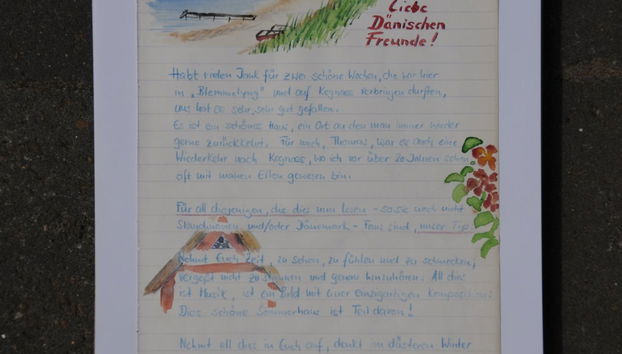 Liebe
Dänischen
Freunde!
Habt vielen Dank für zwei schöne Wochen, die wir hier
in „Blemmelyng" und auf Kegnaes verbringen durften,
uns hat es sehr, sehr gut gefallen.
Es ist ein schönes Haus, ein Ort an den man immer wieder
gerne zurückkehrt. Für mich, Thomas, war es auch eine
Wiederkehr nach Kegnaes, wo ich vor über 20 Jahren schon
oft mit meinen Eltern gewesen bin.
Für all diejenigen, die dies nun lesen - so sie noch nicht
Skandinavien und/oder Dänemark - Fans sind, unser Tip:
Nehmt Euch Zeit, zu sehen, zu fühlen und zu schmecken,
vergeßt nicht zu staunen und genau hinzuhören. All dies
ist Musik, ist ein Bild mit einer einzigartigen Komposition:
Dies schöne Sommerhaus ist Teil davon!
Nehmt all dies in Euch auf, denkt im düsteren Winter